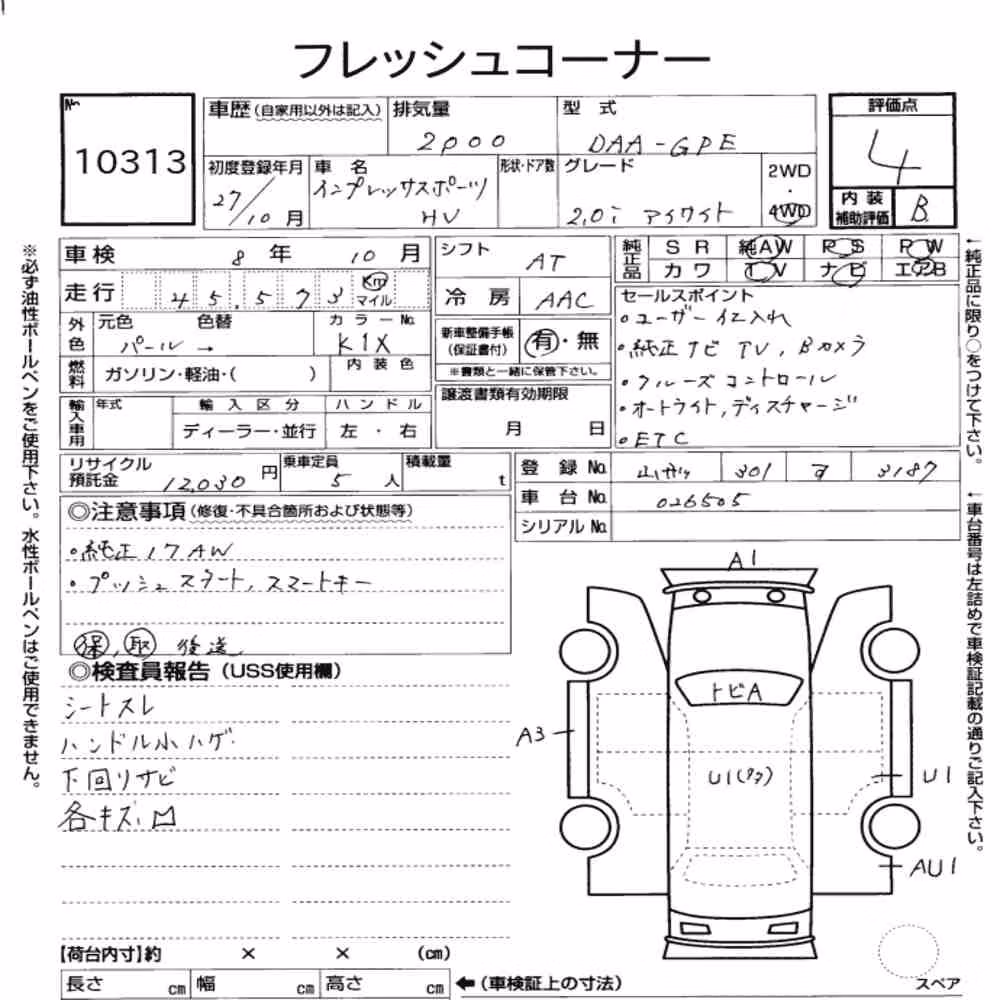 フレッシュコーナー
No.
10313
車歴(自家用以外は記入)
排気量
2000
型式
DAA-GPE
評価点
4
内装
補助評価
B
初度登録年月
27/10月
車名
インプレッサスポーツ
HV
形状・ドア数
グレード
2.0i アイサイト
2WD
・
4WD
車検
8年10月
シフト
AT
純正品
SR
純AW
PS
PW
カワ
TV
ナビ
エアB
走行
45,573
Km
マイル
冷房
AAC
セールスポイント
・ユーザー仕入れ
・純正ナビ TV, Bカメラ
・クルーズコントロール
・オートライト,ディスチャージ
・ETC
外色
元色
色替
パール→
カラーNo.
K1X
内装色
新車整備手帳
(保証書付)
有・無
※書類と一緒に保管下さい。
燃料
ガソリン・軽油・( )
輸入車用
年式
輸入区分
ディーラー・並行
ハンドル
左・右
譲渡書類有効期限
月 日
リサイクル
預託金
12,030円
乗車定員
5人
積載量
t
登録No.
301
す
3187
車台No.
026505
シリアルNo.
◎注意事項(修復・不具合箇所および状態等)
・純正17AW
・プッシュスタート,スマートキー
保,取 後送
◎検査員報告(USS使用欄)
シートスレ
ハンドル小ハゲ
下回りサビ
各キズ凹
A1
トビA
A3
U1
U1
AU1
【荷台内寸】約 × × (cm)
長さ cm 幅 cm 高さ cm
←(車検証上の寸法)
スペア
※必ず油性ボールペンをご使用下さい。水性ボールペンはご使用できません。
←純正品に限り○をつけて下さい。
←車台番号は左詰めで車検証記載の通りご記入下さい。